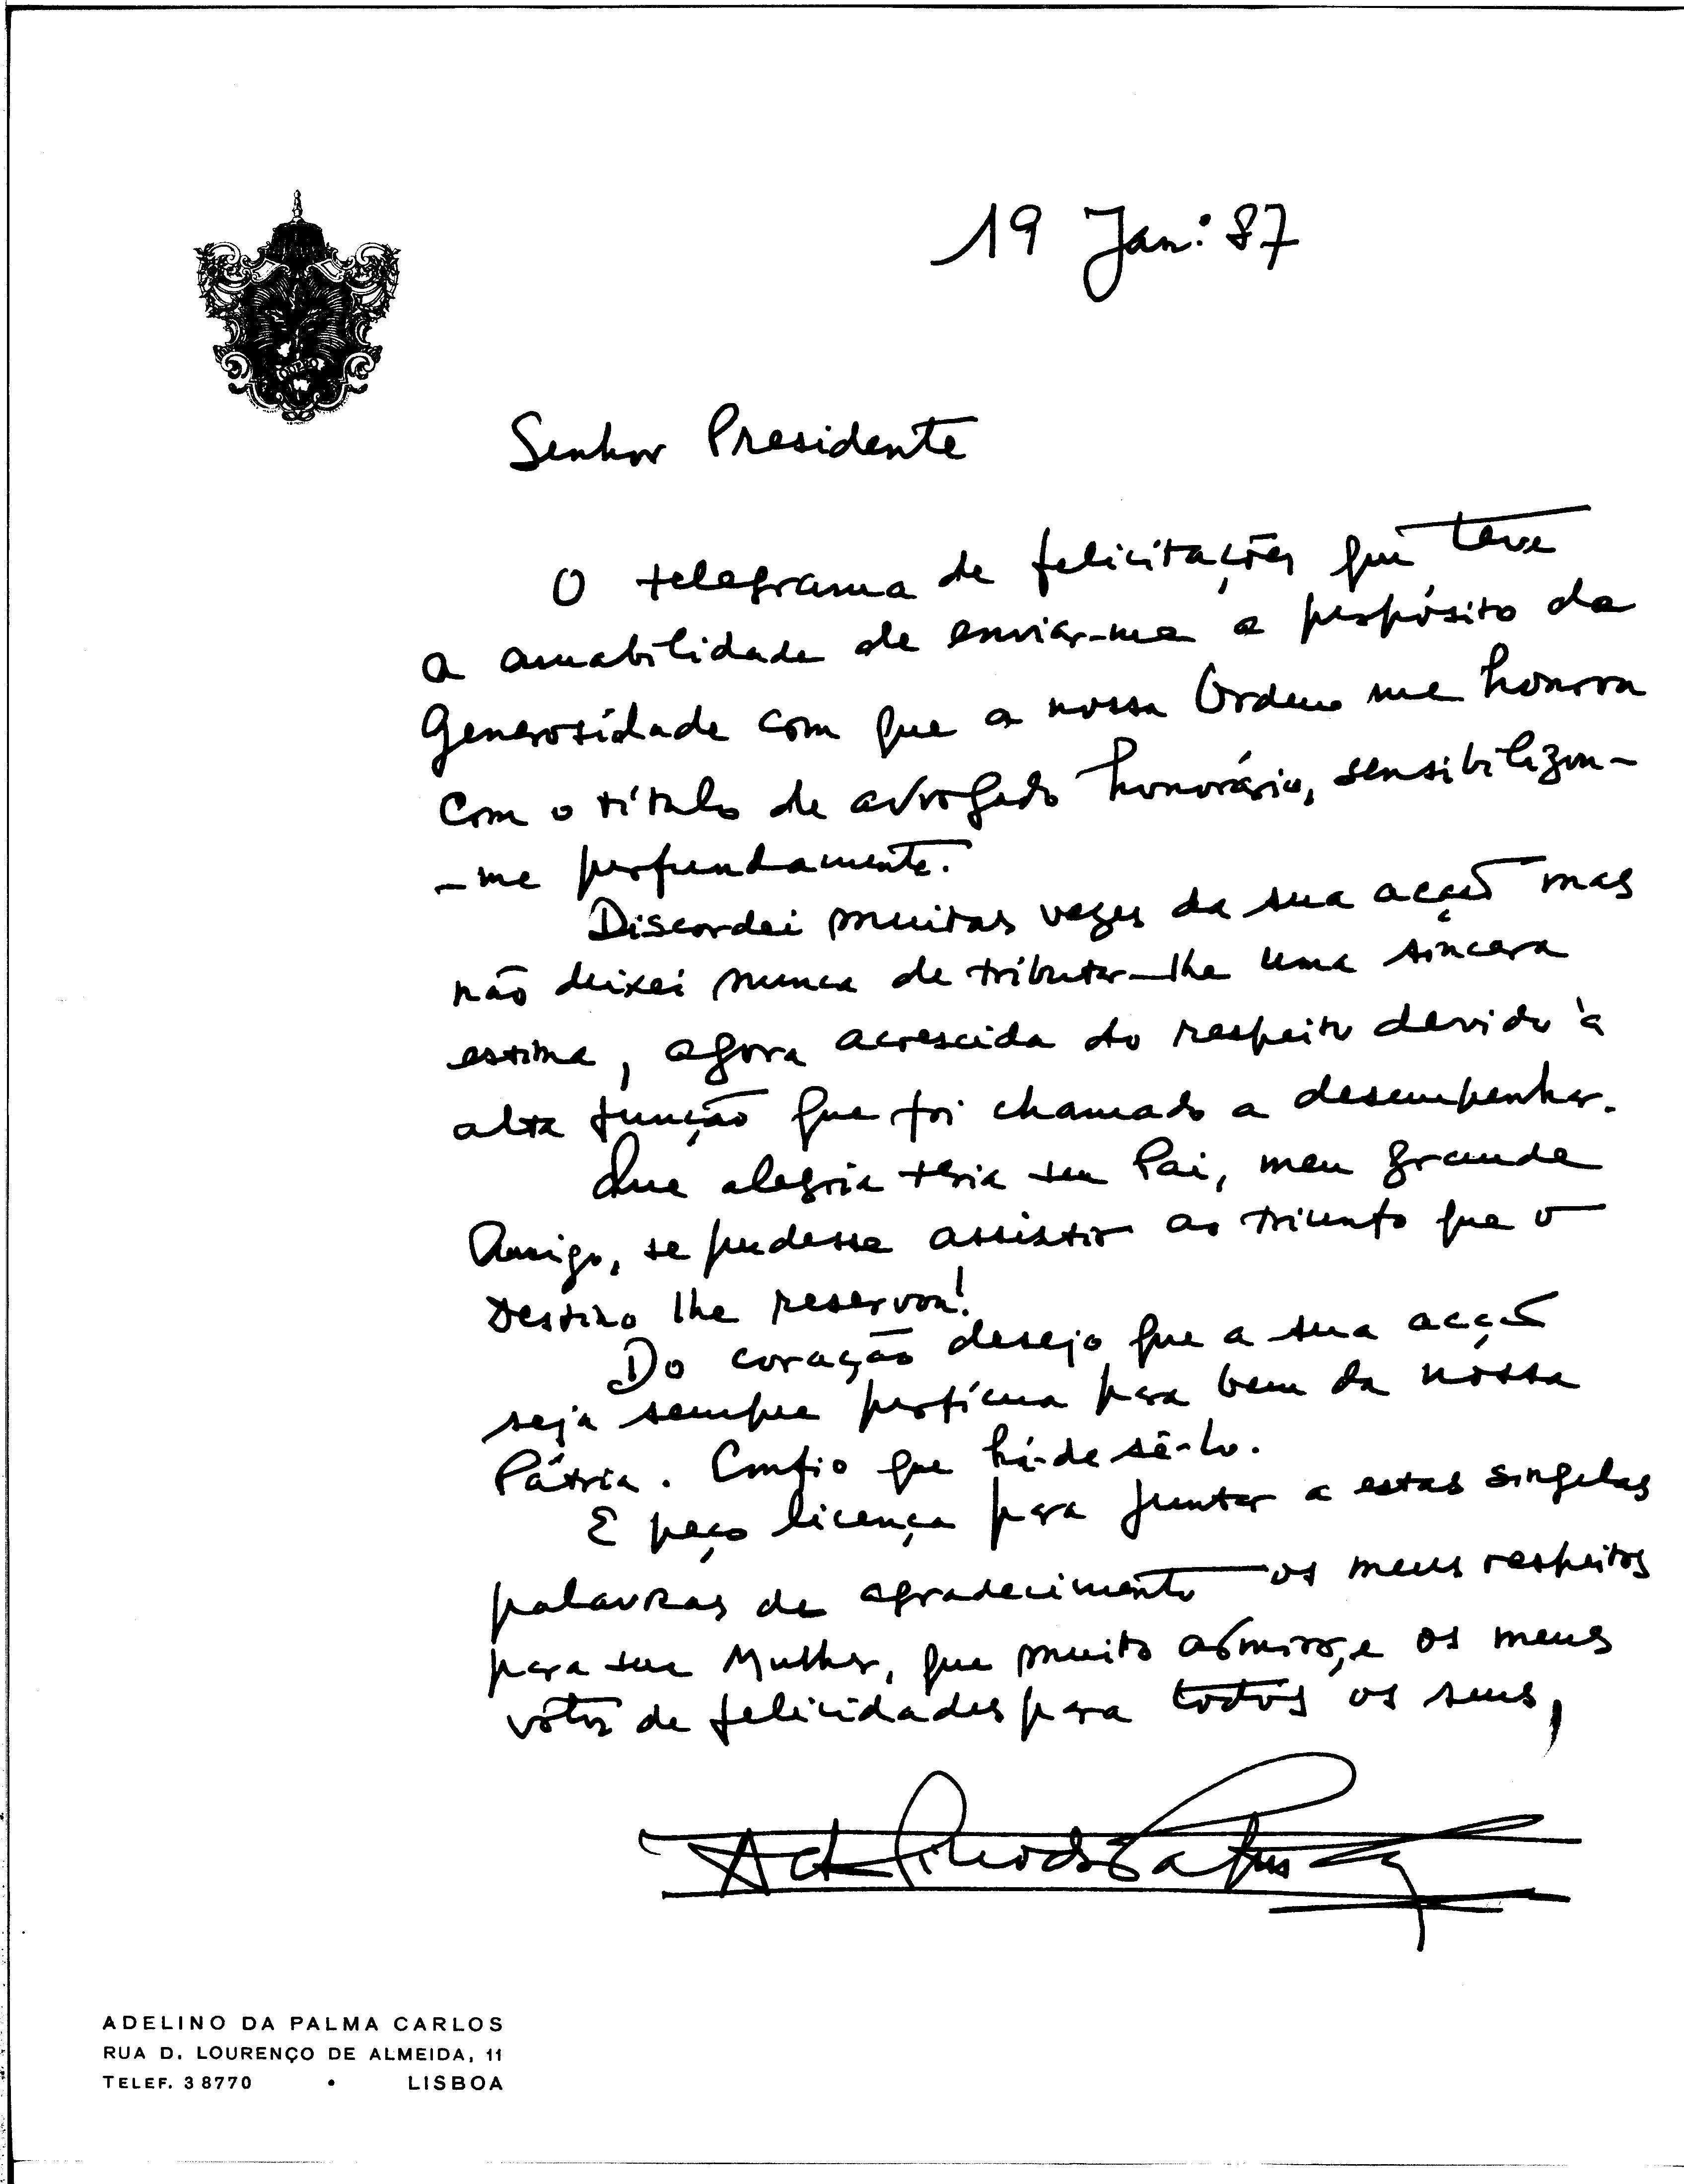 19 Jan: 87
Senhor Presidente
O telegrama de felicitações que teve
a amabilidade de enviar-me a propósito da
Generosidade com que a nossa Ordem me honrou
com o título de advogado honorário, sensibilizou-
-me profundamente.
Discordei muitas vezes da sua acção mas
não deixei nunca de tributar-lhe uma sincera
estima, agora acrescida do respeito devido à
alta função que foi chamado a desempenhar.
Que alegria teria seu Pai, meu grande
Amigo, se pudesse assistir ao triunfo que o
Destino lhe reservou!
Do coração desejo que a sua acção
seja sempre profícua para bem da nossa
Pátria. Confio que há-de sê-lo.
E peço licença para juntar a estas singelas
palavras de agradecimento os meus respeitos
para sua Mulher, que muito admiro, e os meus
votos de felicidades para todos os seus,
Adelino da Palma
ADELINO DA PALMA CARLOS
RUA D. LOURENÇO DE ALMEIDA, 11
TELEF. 38770 • LISBOA